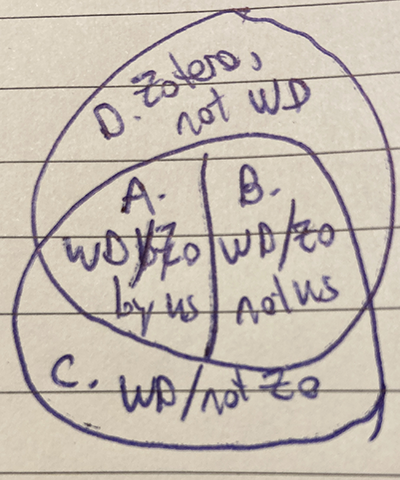 D. Zotero,
not WD
A.
WD/Zo
by us
B.
WD/Zo
not us
C. WD/not Zo